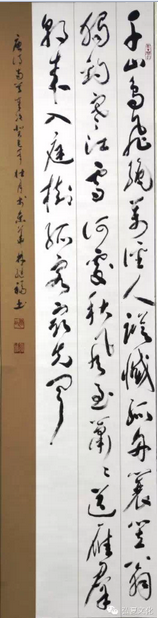 千山鳥飛絕萬徑人蹤滅孤舟蓑笠翁
獨釣寒江雪何處秋風至蕭々送雁羣
朝來入庭樹孤客最先聞
唐詩 癸巳年 月於東 書